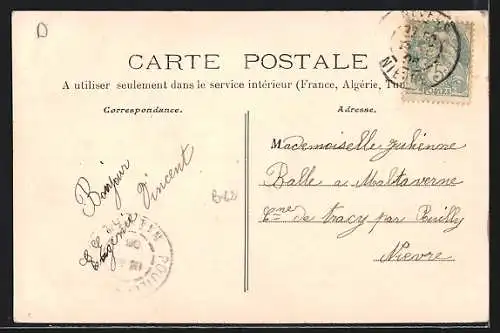 D
CARTE POSTALE
A utiliser seulement dans le service intérieur (France, Algérie,
Correspondance.
Adresse.
Bonjour
Eugénie Vincent
Mademoiselle Julienne
Balle a Maltaverne
Cne de tracy par Pouilly
Nievre
NIEVRE
POSTES